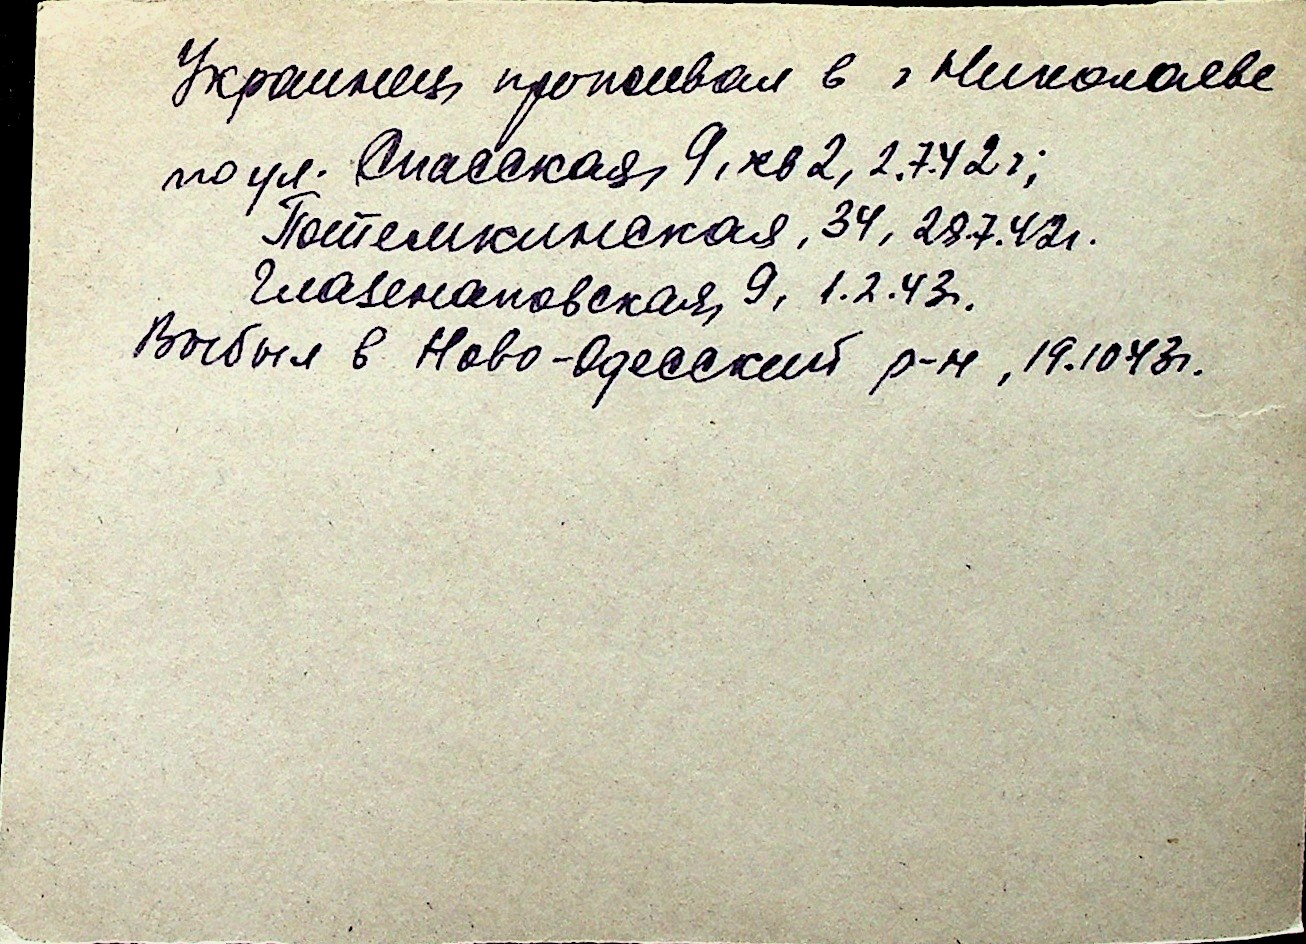 Украинец, проживал в г Николаеве
по ул. Спасская, 9, кв 2, 2.7.42 г;
Потемкинская, 34, 28.7.42г.
Глазенаповская, 9, 1.2.43г.
Выбыл в Ново-Одесский р-н, 19.10.43г.